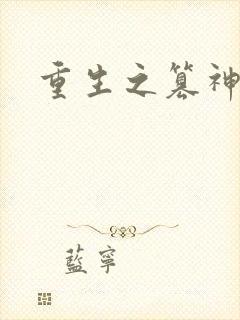 重生之篡神
藍寧